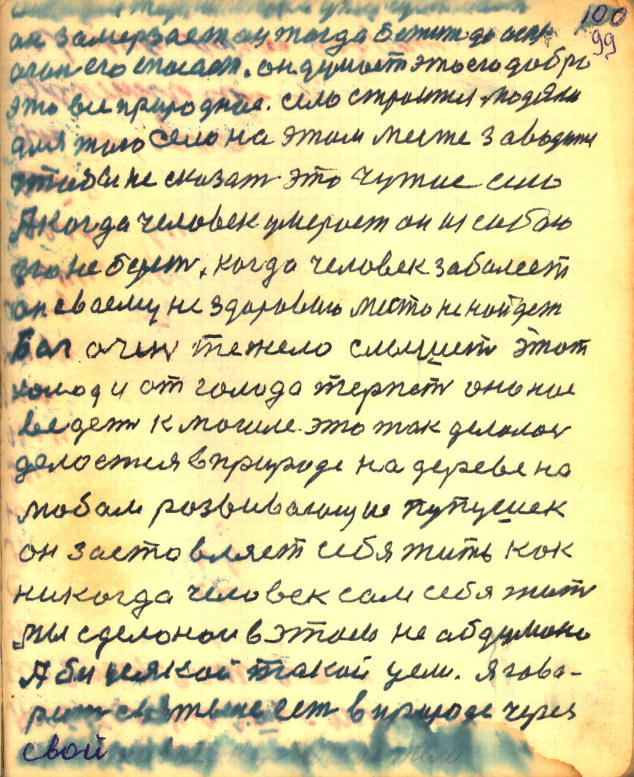 100
99
он замерзает он тогда бежит до огн
огон его спасает. он думает это его добро
это все природное. село строится людями
для того село на этом месте заводити
чтобы не сказат это чужие село
А когда человек умерает он из собою
его не берет, когда человек заболеет
он своему не здоровью место не найдет
Бог очен тежело слышет этот
холод и от голода терпет оно нас
ведет к могиле это так делолос
делостся в природе на дереве на
любом розвивающие пупушек
он застовляет себя жить кок
никогда человек сам себя жит
мы сделонои в этом не абдумоно
А би усякой такой цели. я гово-
рит в природе через
свой